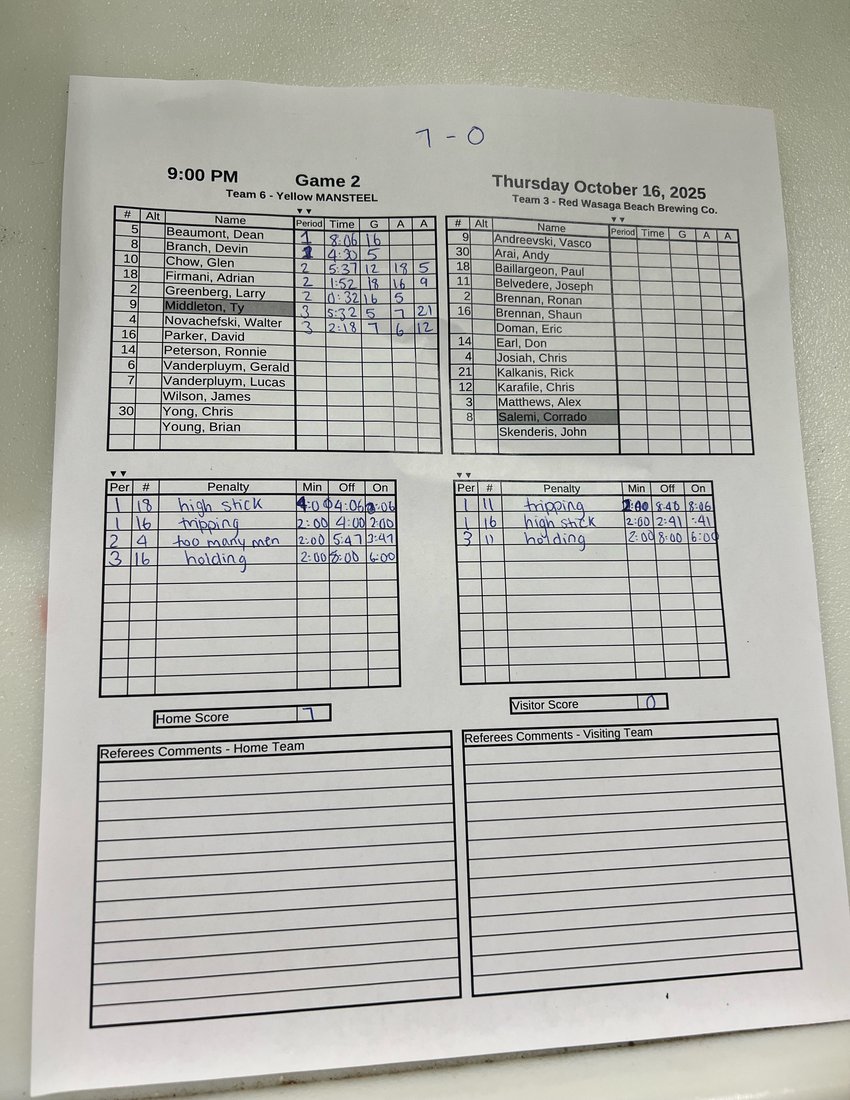 7 - 0
9:00 PM Game 2 Thursday October 16, 2025
Team 6 - Yellow MANSTEEL Team 3 - Red Wasaga Beach Brewing Co.
# Alt Name Period Time G A A
5 Beaumont, Dean 1 8:06 16
8 Branch, Devin 1 4:30 5
10 Chow, Glen 2 5:37 12 18 5
18 Firmani, Adrian 2 1:52 18 16 9
2 Greenberg, Larry 2 0:32 16 5
9 Middleton, Ty 3 5:32 5 7 21
4 Novachefski, Walter 3 2:18 7 6 12
16 Parker, David
14 Peterson, Ronnie
6 Vanderpluym, Gerald
7 Vanderpluym, Lucas
Wilson, James
30 Yong, Chris
Young, Brian
# Alt Name Period Time G A A
9 Andreevski, Vasco
30 Arai, Andy
18 Baillargeon, Paul
11 Belvedere, Joseph
2 Brennan, Ronan
16 Brennan, Shaun
Doman, Eric
14 Earl, Don
4 Josiah, Chris
21 Kalkanis, Rick
12 Karafile, Chris
3 Matthews, Alex
8 Salemi, Corrado
Skenderis, John
Per # Penalty Min Off On
1 18 high stick 4:00 4:06 :06
1 16 tripping 2:00 4:00 2:00
2 4 too many men 2:00 5:47 3:47
3 16 holding 2:00 8:00 6:00
Per # Penalty Min Off On
1 11 tripping 2:00 8:40 8:06
1 16 high stick 2:00 2:41 :41
3 11 holding 2:00 8:00 6:00
Home Score 7
Visitor Score 0
Referees Comments - Home Team
Referees Comments - Visiting Team